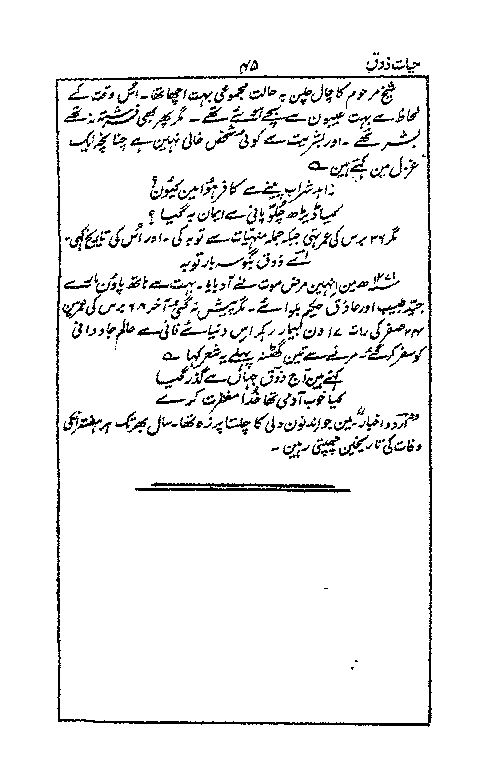 حیات ذوق ۴۵
شیخ مرحوم کا چال چلن بہ حالت مجموعی بہت اچھا تھا۔ اُس وقت کے
لحاظ سے بہت عیبون سے بچے تھے۔ مگر پھر بھی فرشتہ نہ تھے
بشر تھے۔ اور بشریت سے کوئی شخص خالی نہین ہے چنانچہ ایک
غزل مین کہتے ہین ؎
زاہد شراب پینے سے کافر ہوا مین کیون؟
کیا ڈیڑھ چلّو پانی سے ایمان بہ گیا؟
مگر ۳۶ برس کی عمر تھی جبکہ جملہ منہیات سے توبہ کی۔ اور اُس کی تاریخ کہی۔
اے ذوق بگو سہ بار توبہ
۱۲۷۱ھ مین انہین مرض موت نے آ دبایا۔ بہت سے ہاتھ پاؤن مارے
جیّد طبیب اور حاذق حکیم بلوائے۔ مگر پیش نہ گئی آخر ۶۸ برس کی عمر مین
۲۴ صفر کی رات ۱۷ دن بیمار رہکر اس دنیائے فانی سے عالم جاودانی
کو سفر کر گئے۔ مرنے سے تین گھنٹہ پہلے یہ شعر کہا ؎
کہتے مین آج ذوق جہان سے گذر گیا
کیا خوب آدمی تھا خدا مغفرت کرے
”اردو اخبار“ مین جو اندنون دلی کا چلتا پرزہ تھا۔ سال بھر تک ہر ہفتہ انکی
وفات کی تاریخین چھپتی رہین۔